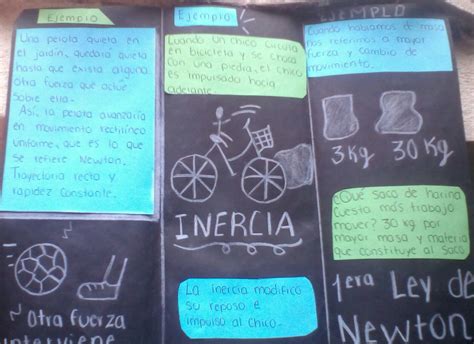 Ejemplo
Una pelota quieta en
el jardín, quedará quieta
hasta que exista alguna
otra fuerza que actúe
sobre ella.
Así, la pelota avanzaría
en movimiento rectilíneo
uniforme, que es lo que
se refiere Newton.
Trayectoria recta y
rapidez constante.
~ Otra fuerza
interviene
Ejemplo
Cuando un chico circula
en bicicleta y se choca
con una piedra, el chico
es impulsado hacia
adelante.
INERCIA
La inercia modificó
su reposo e
impulso al chico.
EJEMPLO
Cuando hablamos de masa
nos referimos a mayor
fuerza y cambio de
movimiento.
3 Kg 30 Kg
¿Qué saco de harina
cuesta más trabajo
mover? 30 kg por
mayor masa y materia
que constituye al saco
1era Ley de
Newton